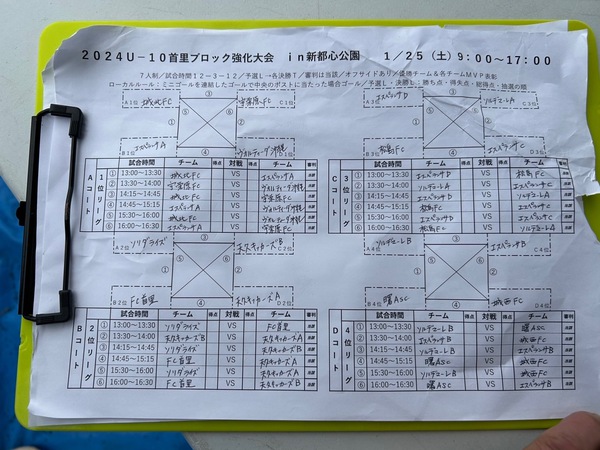 2024U-10首里ブロック強化大会　in新都心公園　1／25（土）9:00～17:00
7人制／試合時間12－3－12／予選L→各決勝T／審判は当該／オフサイドあり／優勝チーム＆各チームMVP表彰
ローカルルール：ミニゴールを連結したゴールで中央のポストに当たった場合ゴール／予選L・決勝L：勝ち点・得失点・総得点・抽選の順
A1位 城北FC ③ 宇栄原FC C1位
① ⑤ ⑥ ②
B1位 エスペランサA ④ ヴォルティーダ沖縄 D1位
Aコート 1位リーグ
試合時間 チーム 得点 対戦 得点 チーム 審判
① 13:00～13:30 城北FC VS エスペランサA
② 13:30～14:00 宇栄原FC VS ヴォルティーダ沖縄
③ 14:15～14:45 城北FC VS 宇栄原FC
④ 14:45～15:15 エスペランサA VS ヴォルティーダ沖縄
⑤ 15:30～16:00 城北FC VS ヴォルティーダ沖縄
⑥ 16:00～16:30 エスペランサA VS 宇栄原FC
A3位 エスペランサD ③ ソルデユーレA C3位
① ⑤ ⑥ ②
B3位 松島FC ④ エスペランサC D3位
Cコート 3位リーグ
試合時間 チーム 得点 対戦 得点 チーム 審判
① 13:00～13:30 エスペランサD VS 松島FC
② 13:30～14:00 ソルデユーレA VS エスペランサC
③ 14:15～14:45 エスペランサD VS ソルデユーレA
④ 14:45～15:15 松島FC VS エスペランサC
⑤ 15:30～16:00 エスペランサD VS エスペランサC
⑥ 16:00～16:30 松島FC VS ソルデユーレA
A2位 ソリダライズ ③ キッカーズB C4位
① ⑤ ⑥ ②
B2位 FC首里 ④ キッカーズA C2位
Bコート 2位リーグ
試合時間 チーム 得点 対戦 得点 チーム 審判
① 13:00～13:30 ソリダライズ VS FC首里
② 13:30～14:00 キッカーズB VS キッカーズA
③ 14:15～14:45 ソリダライズ VS キッカーズB
④ 14:45～15:15 FC首里 VS キッカーズA
⑤ 15:30～16:00 ソリダライズ VS キッカーズA
⑥ 16:00～16:30 FC首里 VS キッカーズB
A4位 ソルデユーレB ③ エスペランサB C4位
① ⑤ ⑥ ②
B4位 曙ASC ④ 城西FC D4位
Dコート 4位リーグ
試合時間 チーム 得点 対戦 得点 チーム 審判
① 13:00～13:30 ソルデユーレB VS 曙ASC
② 13:30～14:00 エスペランサB VS 城西FC
③ 14:15～14:45 ソルデユーレB VS エスペランサB
④ 14:45～15:15 曙ASC VS 城西FC
⑤ 15:30～16:00 ソルデユーレB VS 城西FC
⑥ 16:00～16:30 曙ASC VS エスペランサB